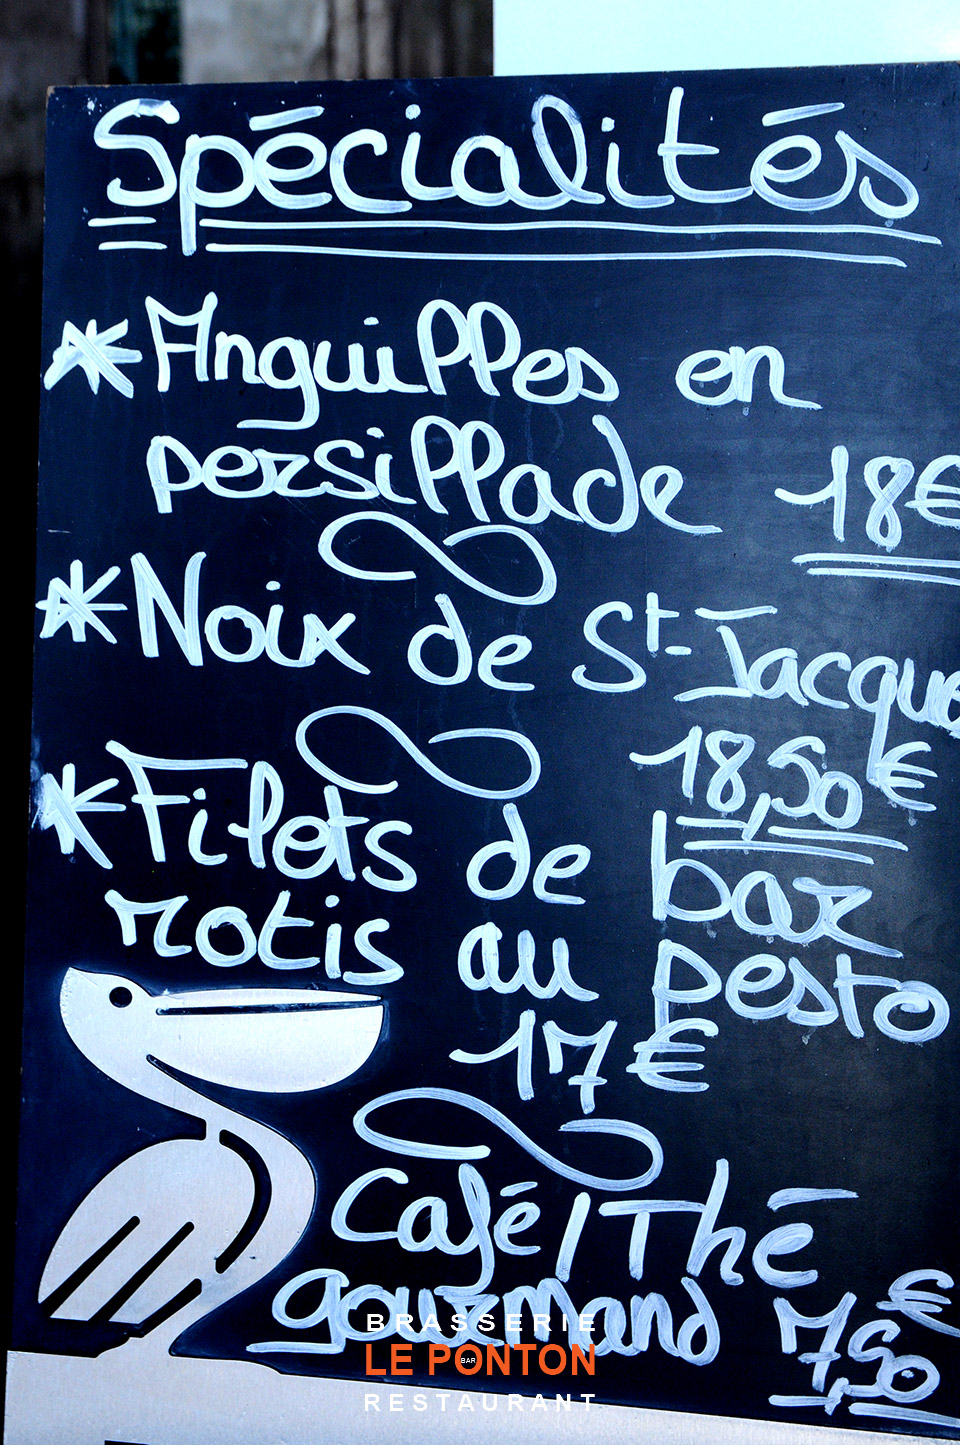 Spécialités
* Anguilles en
persillade 18€
* Noix de St-Jacque
18,50€
* Filets de bar
rotis au pesto
17€
Café/Thé
gourmand 7,50€
BRASSERIE
LE PONTON
BAR
RESTAURANT